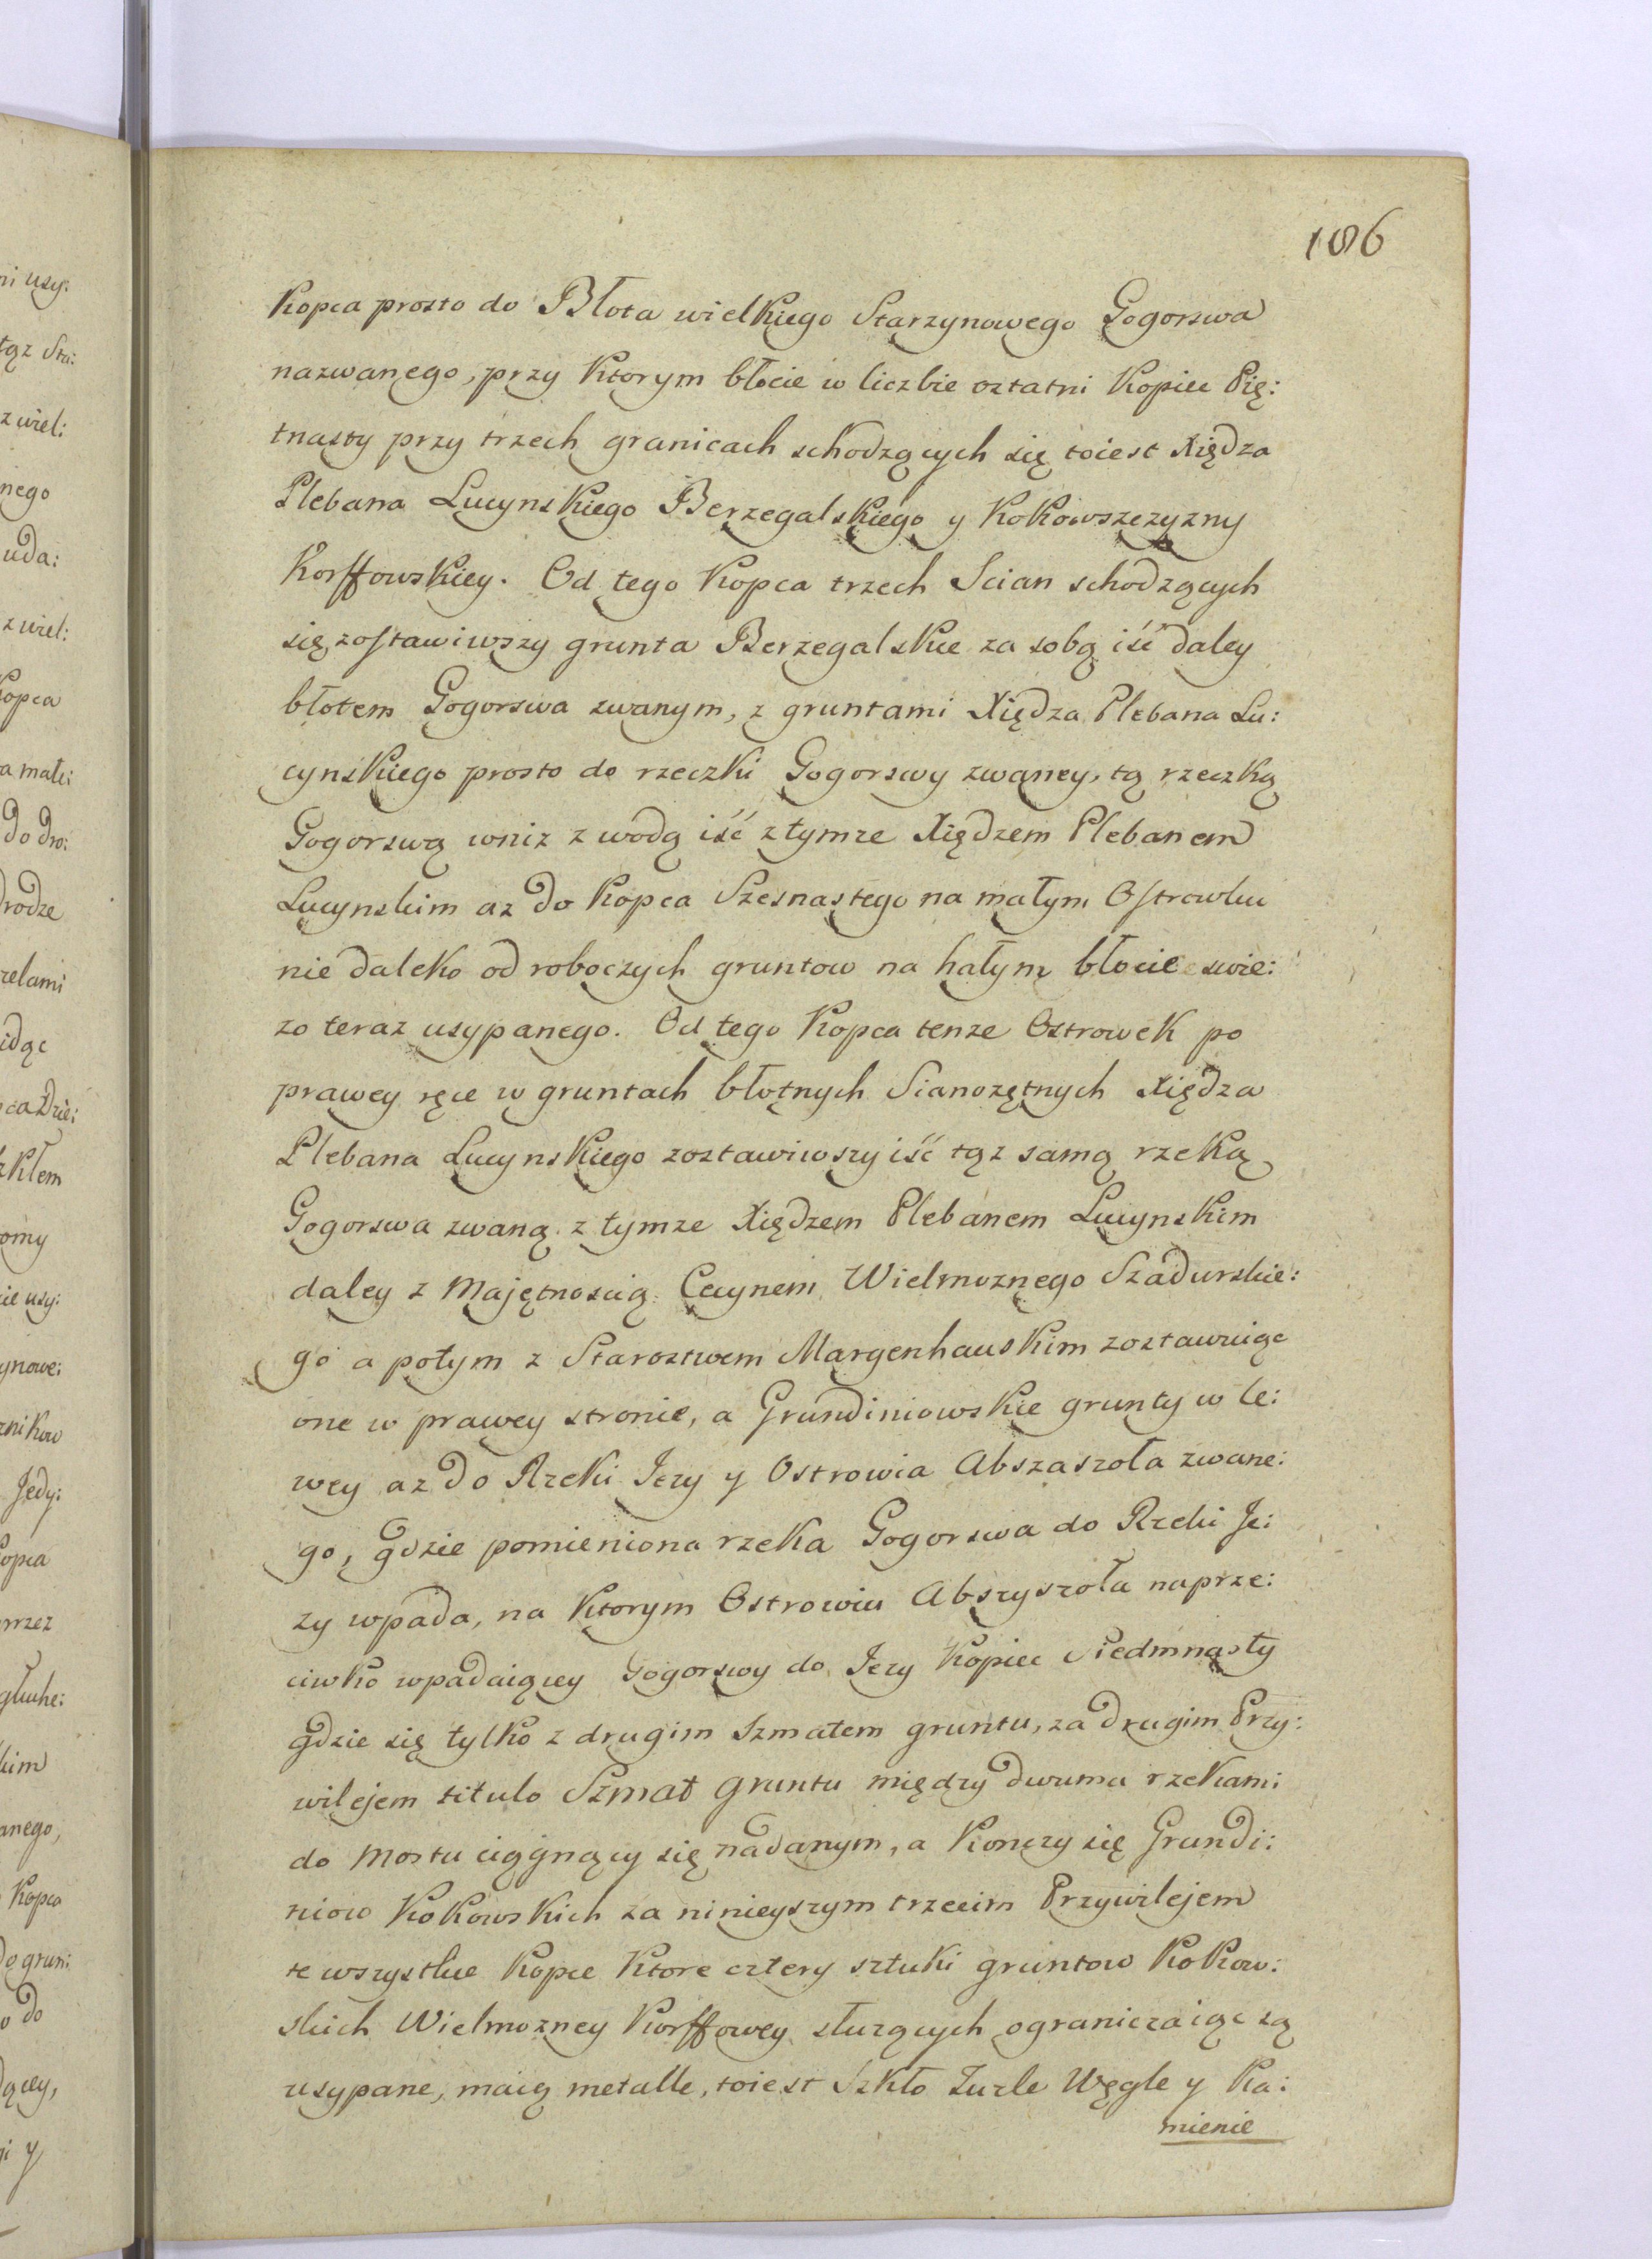 186
Kopca prosto do Błota wielkiego Starzynowego Gogorswa
nazwanego, przy ktorym błocie w liczbie ostatni Kopiec Pię:
tnasty przy trzech granicach schodzących się toiest Xiędza
Plebana Lucynskiego Berzegalskiego y Kokowszczyzny
Korffowskiey. Od tego Kopca trzech Scian schodzących
się zostawiwszy grunta Berzegalskie za sobą iść daley
błotem Gogorswa zwanym, z gruntami Xiędza Plebana Lu:
cynskiego prosto do rzeczki Gogorswy zwaney, tą rzeczką
Gogorswą wniz z wodą iść z tymze Xiędzem Plebanem
Lucynskim az do Kopca Szesnastego na małym Ostrowku
nie daleko od roboczych gruntow na hałym błocie swie:
zo teraz usypanego. Od tego Kopca tenze Ostrowek po
prawey ręce w gruntach błotnych Sianozętnych Xiędza
Plebana Lucynskiego zostawiwszy iść tąz samą rzeką
Gogorswa zwaną z tymze Xiędzem Plebanem Lucynskim
daley z Majętnoscią Cecynem Wielmoznego Szadurskie:
go a potym z Starostwem Margenhauskim zostawuiąc
one w prawey stronie, a Grundiniowskie grunty w le:
wey az do Rzeki Jezy y Ostrowia Abszaszoła zwane:
go, gdzie pomieniona rzeka Gogorswa do Rzeki Je:
zy wpada, na ktorym Ostrowiu Abszyszoła naprze:
ciwko wpadaiącey Gogorswy do Jezy Kopiec Siedmnasty
gdzie się tylko z drugim Szmatem gruntu, za drugim Przy:
wilejem titulo Szmat gruntu między dwuma rzekami
do Mostu ciągnący się nadanym, a Konczy się Grundi:
niow Kokowskich za ninieyszym trzecim Przywilejem
te wszystkie Kopce Ktore cztery sztuki gruntow Kokow:
skich Wielmozney Korffowey słuzących ograniczaiąc są
usypane, maią metalle, toiest Szkło Zuzle Węgle y Ka:
mienie